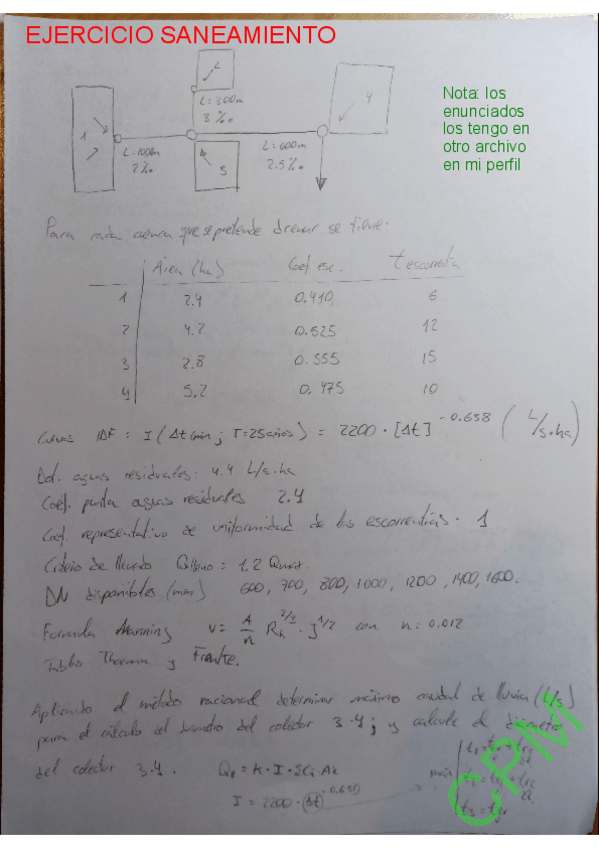 EJERCICIO SANEAMIENTO
Nota: los
enunciados
los tengo en
otro archivo
en mi perfil
2
L=300m
3‰
1
4
L=100m
2‰
3
L=600m
2.5‰
Para cada cuenca que se pretende drenar se tiene:
Área (ha) Coef esc. t escorrentía
1 2.4 0.410 6
2 4.2 0.525 12
3 2.8 0.555 15
4 5.2 0.475 10
Curvas IDF: I (Δt min; T=25 años) = 2200 · [Δt]^-0.658 (L/s·ha)
Dot. aguas residuales: 4.4 L/s·ha
Coef. punta aguas residuales 2.4
Coef. representativo de uniformidad de las escorrentías. 1
Criterio de llenado Qlleno = 1.2 Qmax.
DN disponibles (mm) 600, 700, 800, 1000, 1200, 1400, 1600.
Formula Manning v = A/n Rh^2/3 · J^1/2 con n: 0.012
Tablas Thorman y Franke.
Aplicando el método racional determinar máximo caudal de lluvia (L/s)
para el cálculo del diametro del colector 3-4; y calcule el diametro
del colector 3-4. Qp = K · I · ΣCi·Ai
I = 2200 · (Δt)^-0.658
CPM